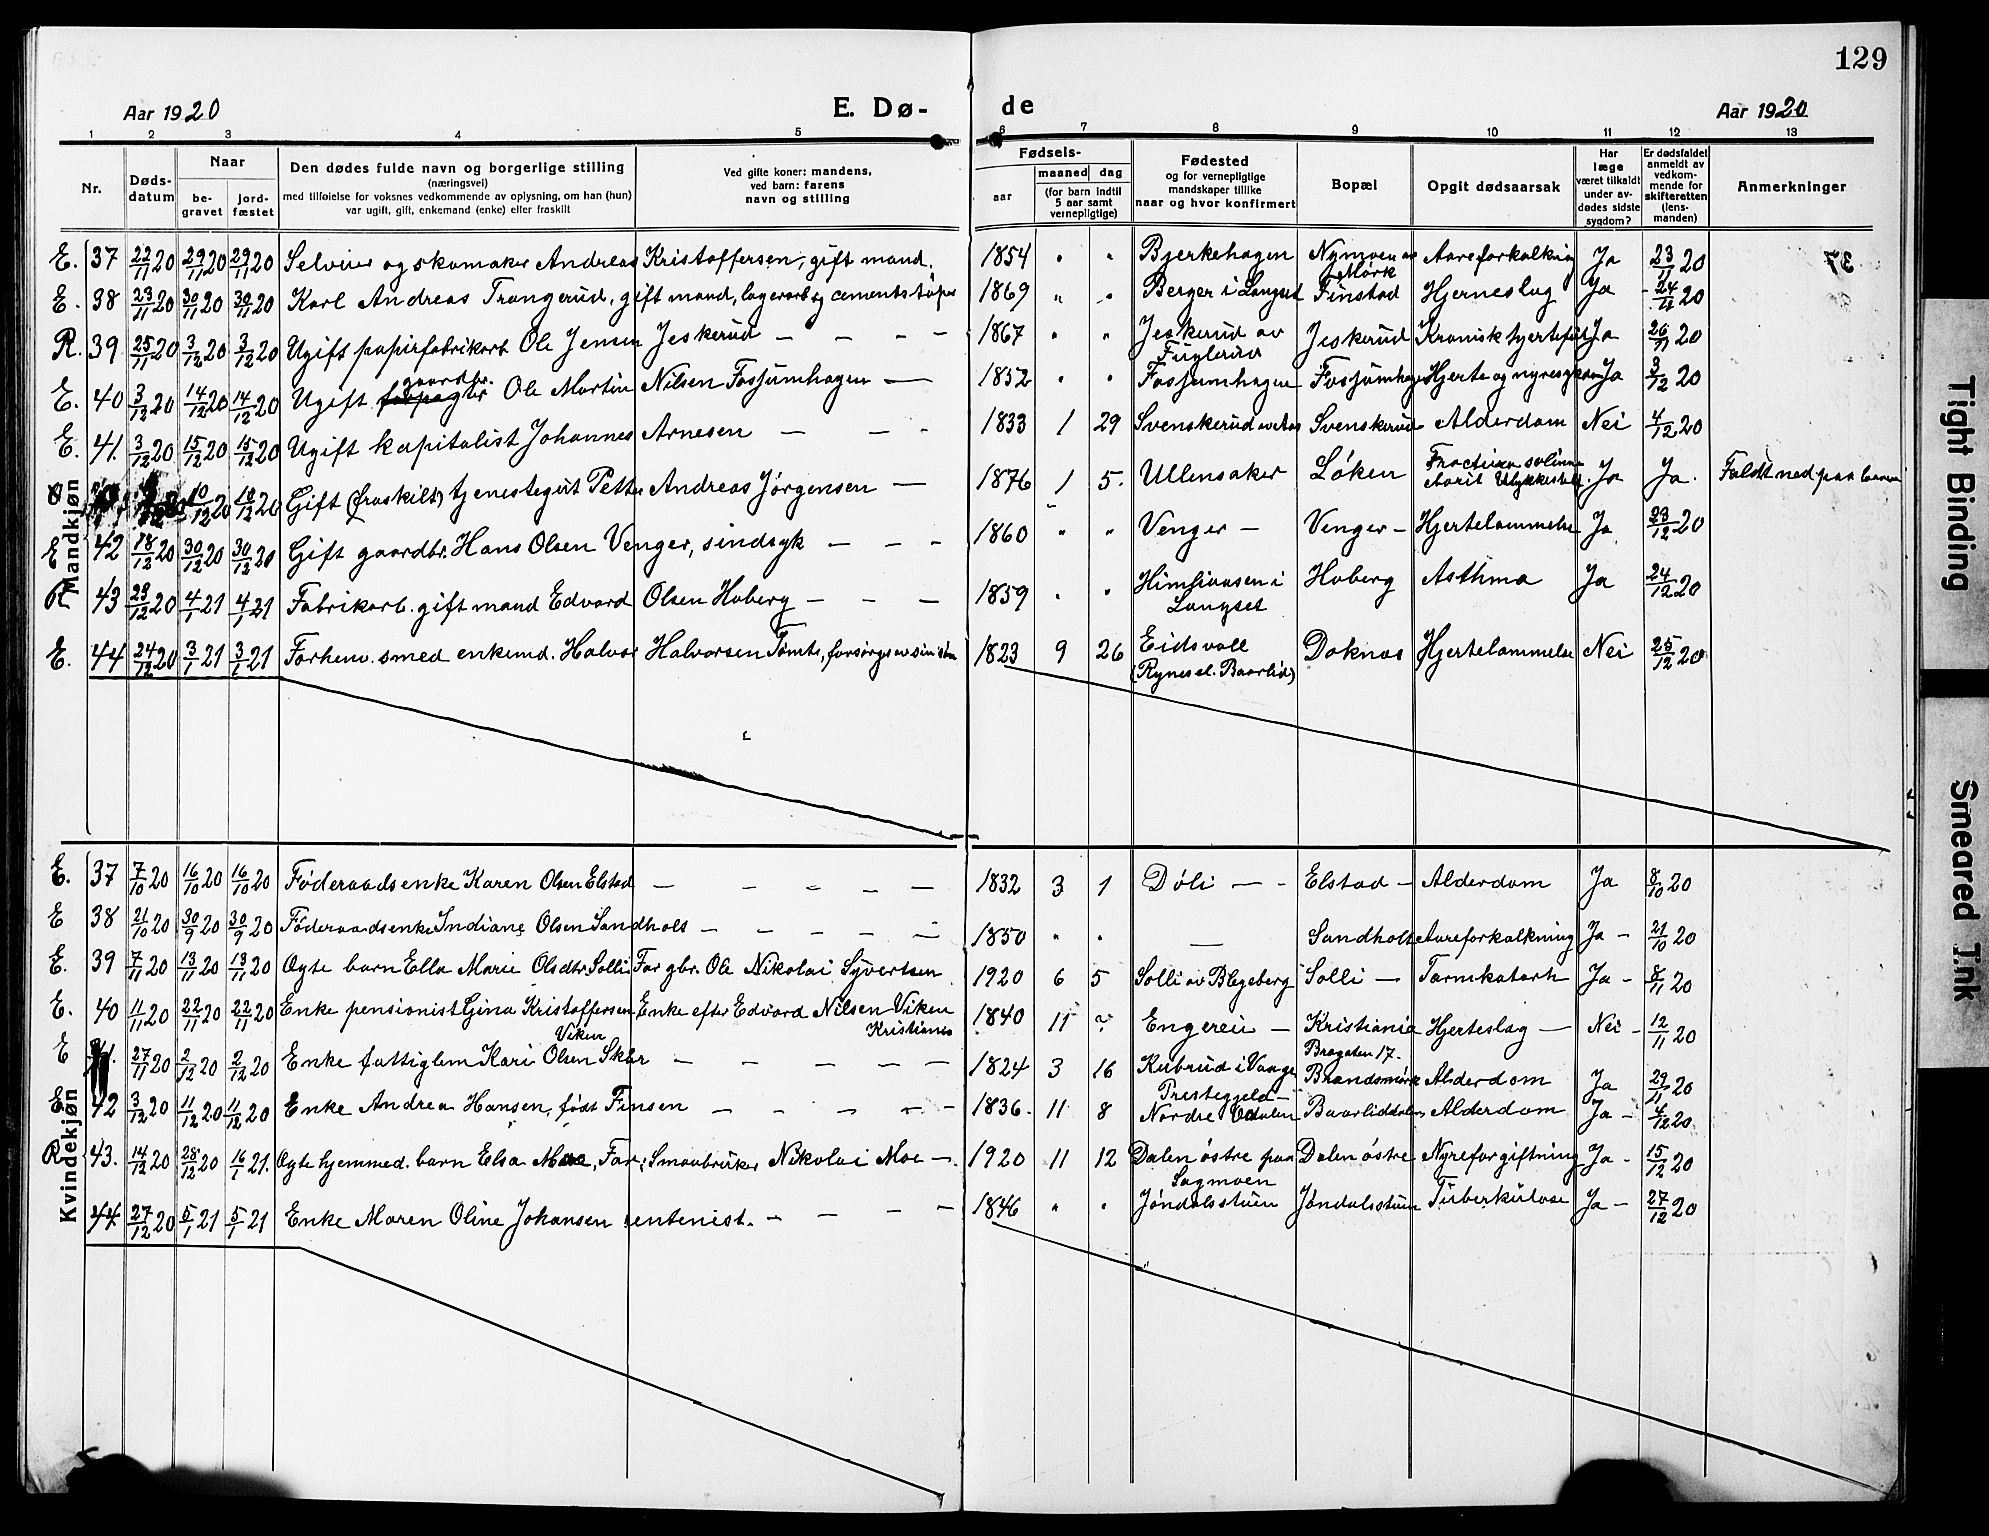 129
Aar 1920 E. Dø- de Aar 1920
1 2 3 4 5 6 7 8 9 10 11 12 13
Nr. Døds-datum Naar be-gravet jord-fæstet Den dødes fulde navn og borgerlige stilling (næringsvei) med tilføielse for voksnes vedkommende av oplysning, om han (hun) var ugift, gift, enkemand (enke) eller fraskilt Ved gifte koner: mandens, ved barn: farens navn og stilling Fødsels- aar maaned dag (for barn indtil 5 aar samt vernepligtige) Fødested og for vernepligtige mandskaper tillike naar og hvor konfirmert Bopæl Opgit dødsaarsak Har læge været tilkaldt under av-dødes sidste sygdom? Er dødsfaldet anmeldt av vedkom-mende for skifteretten (lens-manden) Anmerkninger
Mandkjøn
E. 37 22/11 20 29/11 20 29/11 20 Selveier og skomaker Andreas Kristoffersen, gift mand. 1854 " " Bjerkehagen Nymoen av Mørk Aareforkalkning Ja 23/11 20
E. 38 23/11 20 30/11 20 30/11 20 Karl Andreas Trangerud, gift mand, lagerarb. og cementstøper 1869 " " Berger i Langset Finstad Hjerneslag Ja 24/11 20
R. 39 25/11 20 3/12 20 3/12 20 Ugift papirfabrikarb Ole Jensen Jeskerud — — — 1867 " " Jeskerud av Jeskerud Kronisk hjertefeil Ja 26/11 20
E. 40 3/12 20 14/12 20 14/12 20 Ugift gaardbr. Ole Martin Nilsen Fossumhagen — 1852 " " Fossumhagen Fossumhagen Hjerte og nyresygdom Ja 3/12 20
E. 41. 3/12 20 15/12 20 15/12 20 Ugift kapitalist Johannes Arnesen — — — 1833 1 29 Svenskerud Svenskerud Alderdom Nei 4/12 20
10/12 20 10/12 20 Gift (fraskilt) tjenestegut Petter Andreas Jørgensen — 1876 1 5. Ullensaker Løken Ja Ja. Faldt ned paa
E 42 18/12 20 30/12 20 30/12 20 Gift gaardbr. Hans Olsen Venger, sindsyk — — — 1860 " " Venger — Venger — Hjertelammelse Ja 23/12 20
R 43 23/12 20 4/1 21 4/1 21 Fabrikarb. gift mand Edvard Olsen Hoberg — — — 1859 " " i Langset Hoberg Asthma Ja 24/12 20
E. 44 24/12 20 3/1 21 3/1 21 Forhenv. smed enkemd. Halvor Halvorsen Tømte, forsørges av sin søn 1823 9 26 Eidsvoll (Rynes el. Baarlid) Doknes Hjertelammelse Nei 25/12 20
Kvindekjøn
E. 37 7/10 20 16/10 20 16/10 20 Føderaadsenke Karen Olsen Elstad — — — — — 1832 3 1 Døli — - Elstad — Alderdom Ja 8/10 20
E 38 21/10 20 30/9 20 30/9 20 Føderaadsenke Indiane Olsen Sandholt — — — — — 1850 " " — Sandholt Aareforkalkning Ja — 21/10 20
E. 39 7/11 20 13/11 20 13/11 20 Ægte barn Ella Marie Olsdtr. Solli Far gbr. Ole Nikolai Syvertsen 1920 6 5 Solli av Blegeberg Solli — Tarmkatarh Ja — 8/11 20
E. 40 11/11 20 22/11 20 22/11 20 Enke pensionist Gina Kristoffersen Viken Enke efter Edvard Nilsen Viken Kristiania 1840 11 ? — Kristiania Hjerteslag — Nei — 12/11 20
E 27/11 20 2/12 20 2/12 20 Enke fattiglem Kari Olsen — — — — — 1824 3 16 i Prestegjeld — Alderdom Ja 29/11 20
E 42 3/12 20 11/12 20 11/12 20 Enke Andrea Hansen, født Finsen — — — — — 1836. 11 8 Nordre Odalen Baarliddalen Alderdom Ja — 4/12 20
R 43. 14/12 20 28/12 20 16/1 21. Ægte hjemmed. barn Elsa Moe, Far: Smaabruker Nikolai Moe — 1920 11 12 Dalen østre paa Sagmoen Dalen østre Nyreforgiftning Ja — 15/12 20
44 27/12 20 5/1 21 5/1 21 Enke Maren Oline Johansen rentenist. — — — — 1846 " " Jøndalsstuen Jøndalsstuen Tuberkulose Ja — 27/12 20
Tight Binding
Smeared Ink